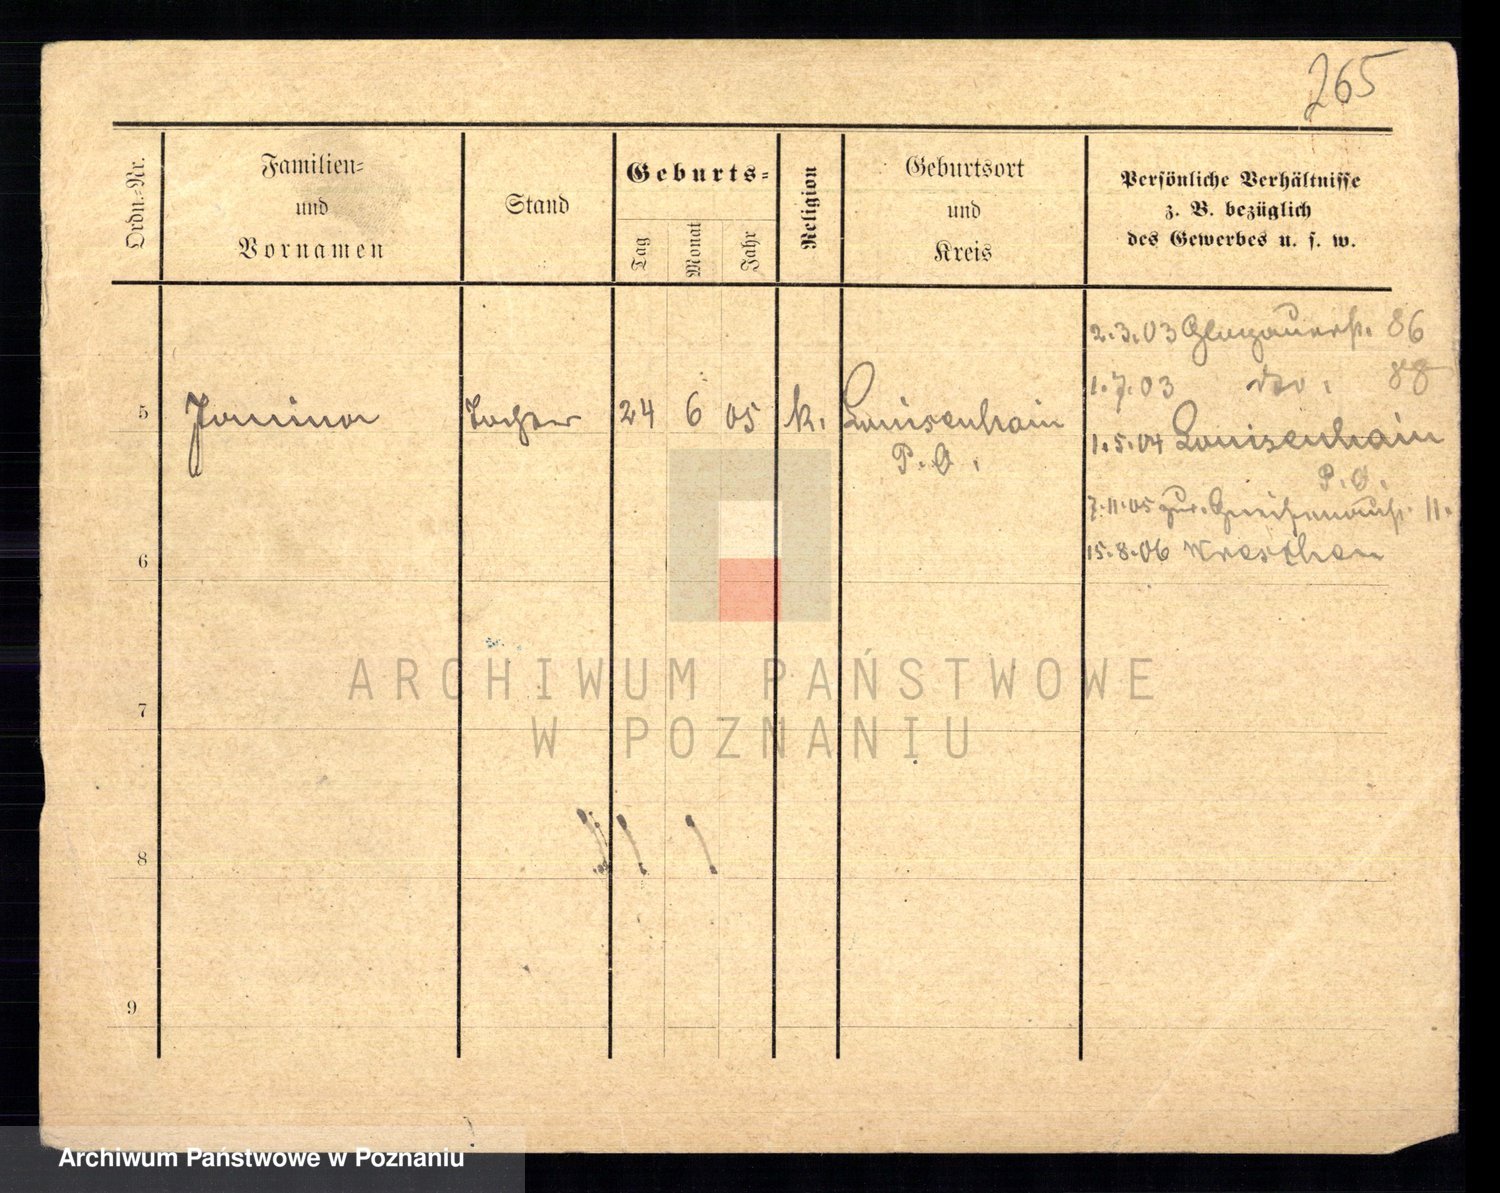 265
Ordn.-Nr.
Familien-
und
Vornamen
Stand
Geburts-
Tag
Monat
Jahr
Religion
Geburtsort
und
Kreis
Persönliche Verhältnisse
z. B. bezüglich
des Gewerbes u. s. w.
2.3.03 Glogauerst. 86
1.7.03 do. 88
5 Janina Tochter 24 6 05 k. Louisenhain
P.O.
1.5.04 Louisenhain
P.O.
7.11.05 zur. 11.
6
15.8.06 Wreschen
7
8
9
ARCHIWUM PAŃSTWOWE
W POZNANIU
Archiwum Państwowe w Poznaniu